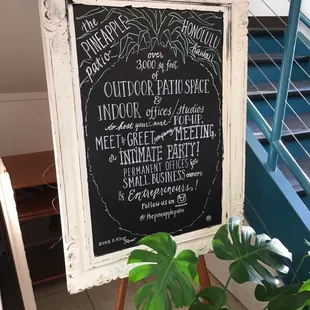 the PINEAPPLE patio
HONOLULU Hawaii
over
3,000 sq feet
of
OUTDOOR PATIO SPACE
&
INDOOR offices/studios
to host your POP-UP,
MEET & GREET, MEETING,
or INTIMATE PARTY!
PERMANENT OFFICES for
SMALL BUSINESS owners
& Entrepreneurs!
Follow us on
@thepineapplepatio
King
Street